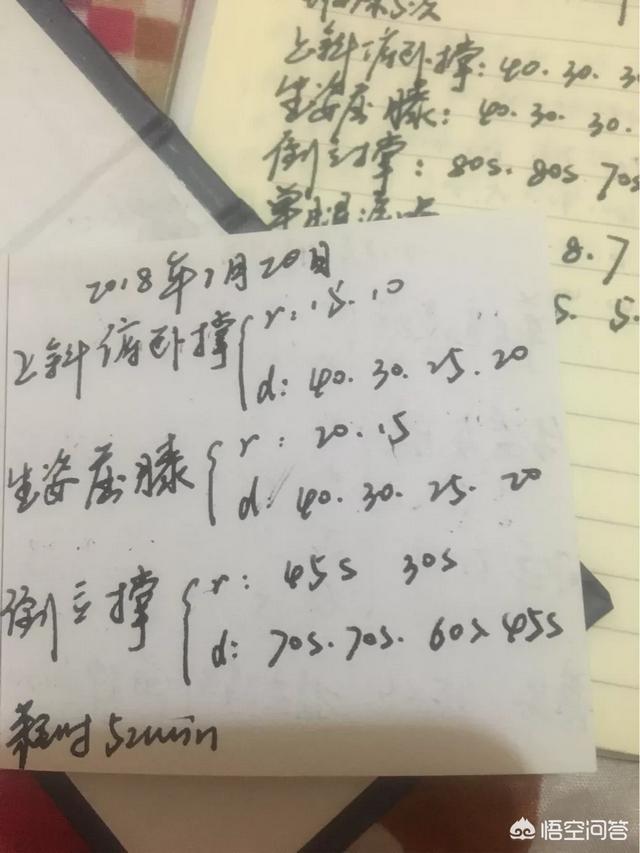 上斜俯卧撑: 40. 30. 3
坐姿屈膝: 40. 30. 30.
倒立撑: 80s. 80s 70s
8. 7
5. 5.
2018年1月20日
上斜俯卧撑 { r: 15. 10
d: 40. 30. 25. 20
坐姿屈膝 { r: 20. 15
d: 40. 30. 25. 20
倒立撑 { r: 45s 30s
d: 70s. 70s. 60s 45s
耗时 52min
悟空问答